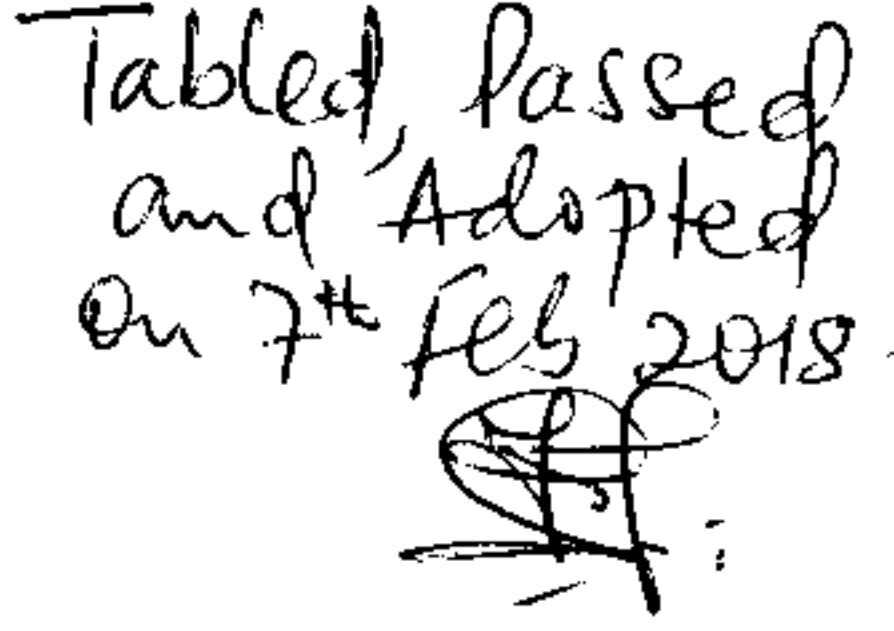 Tabled, Passed
and Adopted
on 7th Feb 2018.